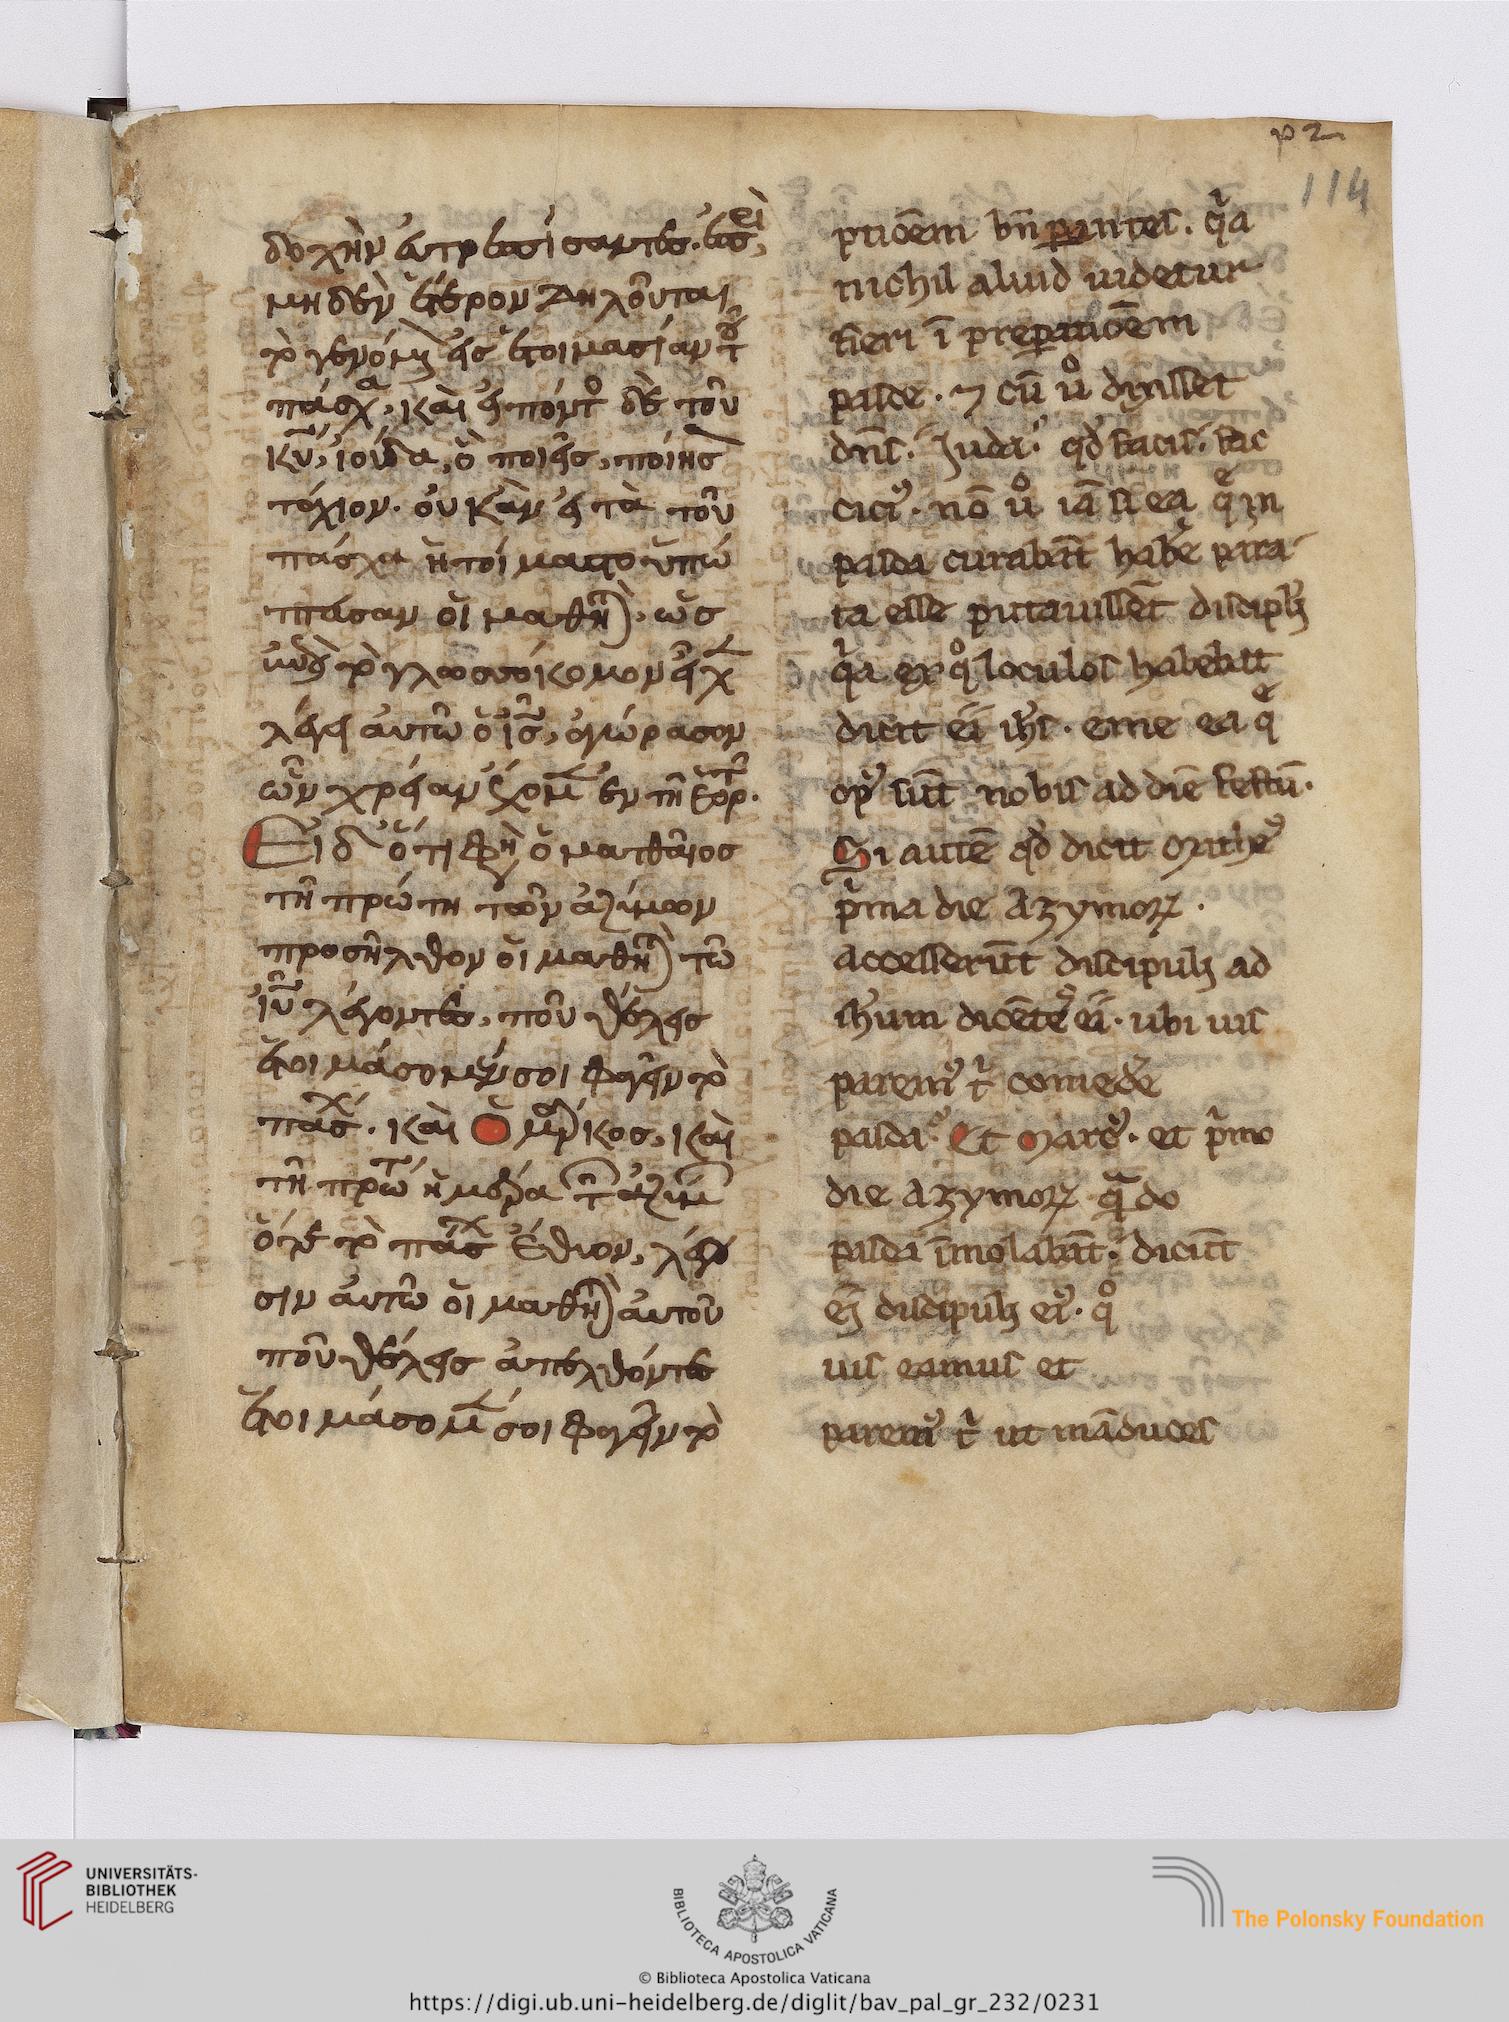 p 2
114
δοχὴν εὐτρεπίσαντες. ὡς εἰ
μηδὲν ἕτερον δηλοῦται
τὸ γενόμ εἰς ἑτοιμασίαν τοῦ
πάσχα, καὶ εἰπόντο δὲ τοῦ
κυ, ἰούδα, ὃ ποιεῖς, ποίησ
τάχιον. οὐκ ἂν εἰ τὰ τοῦ
πάσχα ἡτοίμαστο
οἱ μαθη, ὡς
τὸ γλωσσόκομον εἶχ
λέγει αὐτῶ ὁ ις, ἀγόρασον
ὧν χρείαν ἔχομ ἐν τῆ ἑορτ.
Εἰ δ ὅτι φη ὁ ματθαῖος
τῆ πρώτη τῶν ἀζύμων
προσῆλθον οἱ μαθη τῶ
ιυ λέγοντες, ποῦ θέλεις
ἑτοιμάσομεν σοι φαγεῖν τὸ
πάσχ. καὶ Ὁ μάρκος, καὶ
τῆ πρώτ ἡμέρα τ ἀζύμ
ὅτε τὸ πάσχ ἔθυον, λέγου
σιν αὐτῶ οἱ μαθη αὐτοῦ
ποῦ θέλεις ἀπελθόντες
ἑτοιμάσομ σοι φαγεῖν τὸ
ptiōem bn̄ parantes. qia
nichil aliud uidetur
fieri ī preparatiōem
pasce. ⁊ cū uo dixisset
dn̄s. Juda. qd facis. fac
cici9. nō uo iā si ea q̄ in
pasca curabāt habe para
ta esse putauissēt discipli
qia ex qo loculos habebat
dicit ei ihs. eme ea q̄
op9 sūt nobis ad diē festū.
Si autē qd dicit Mathe9
pima die Azymoꝝ.
accesserūt discipuli ad
ihum dicētes ei. ubi uis
parem9 ti comede
pasca. Et Marc9. et pimo
die Azymoꝝ quādo
pasca īmolabāt. dicūt
ei discipuli ei9. qo
uis eamus et
parem9 ti ut māduces
UNIVERSITÄTS-
BIBLIOTHEK
HEIDELBERG
BIBLIOTECA APOSTOLICA VATICANA
© Biblioteca Apostolica Vaticana
The Polonsky Foundation
https://digi.ub.uni-heidelberg.de/diglit/bav_pal_gr_232/0231